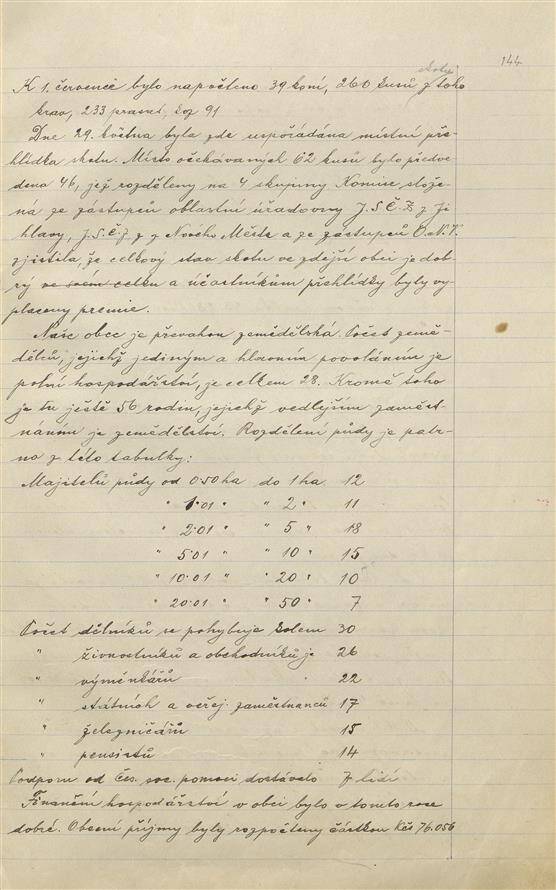 144
K 1. červenci bylo napočteno 39 koní, 260 kusů skotu z toho
krav, 233 prasat, koz 91
Dne 29. května byla zde uspořádána místní pře-
hlídka skotu. Místo očekávaných 62 kusů bylo předve-
deno 46, jež rozděleny na 4 skupiny. Komise slože-
ná ze zástupců oblastní úřadovny J.S.Č.Z. z Ji-
hlavy, J.S.Č.Z. z Nového Města a ze zástupců O.N.V.
zjistila, že celkový stav skotu ve zdejší obci je dob-
rý ve svém celku a účastníkům přehlídky byly vy-
placeny premie.
Naše obec je převahou zemědělská. Počet země-
dělců, jejichž jediným a hlavním povoláním je
polní hospodářství, je celkem 28. Kromě toho
je tu ještě 56 rodin, jejichž vedlejším zaměst-
náním je zemědělství. Rozdělení půdy je patr-
no z této tabulky:
Majitelů půdy od 0·50 ha do 1 ha 12
" 1·01 " " 2 " 11
" 2·01 " " 5 " 18
" 5·01 " " 10 " 15
" 10·01 " " 20 " 10
" 20·01 " " 50 " 7
Počet dělníků se pohybuje kolem 30
" živnostníků a obchodníků je 26
" výměnkářů " 22
" státních a veřej. zaměstnanců 17
" železničářů 15
" pensistů 14
Podporu od Čes. soc. pomoci dostávalo 7 lidí
Finanční hospodářství v obci bylo v tomto roce
dobré. Obecní příjmy byly rozpočteny částkou Kčs 76.056